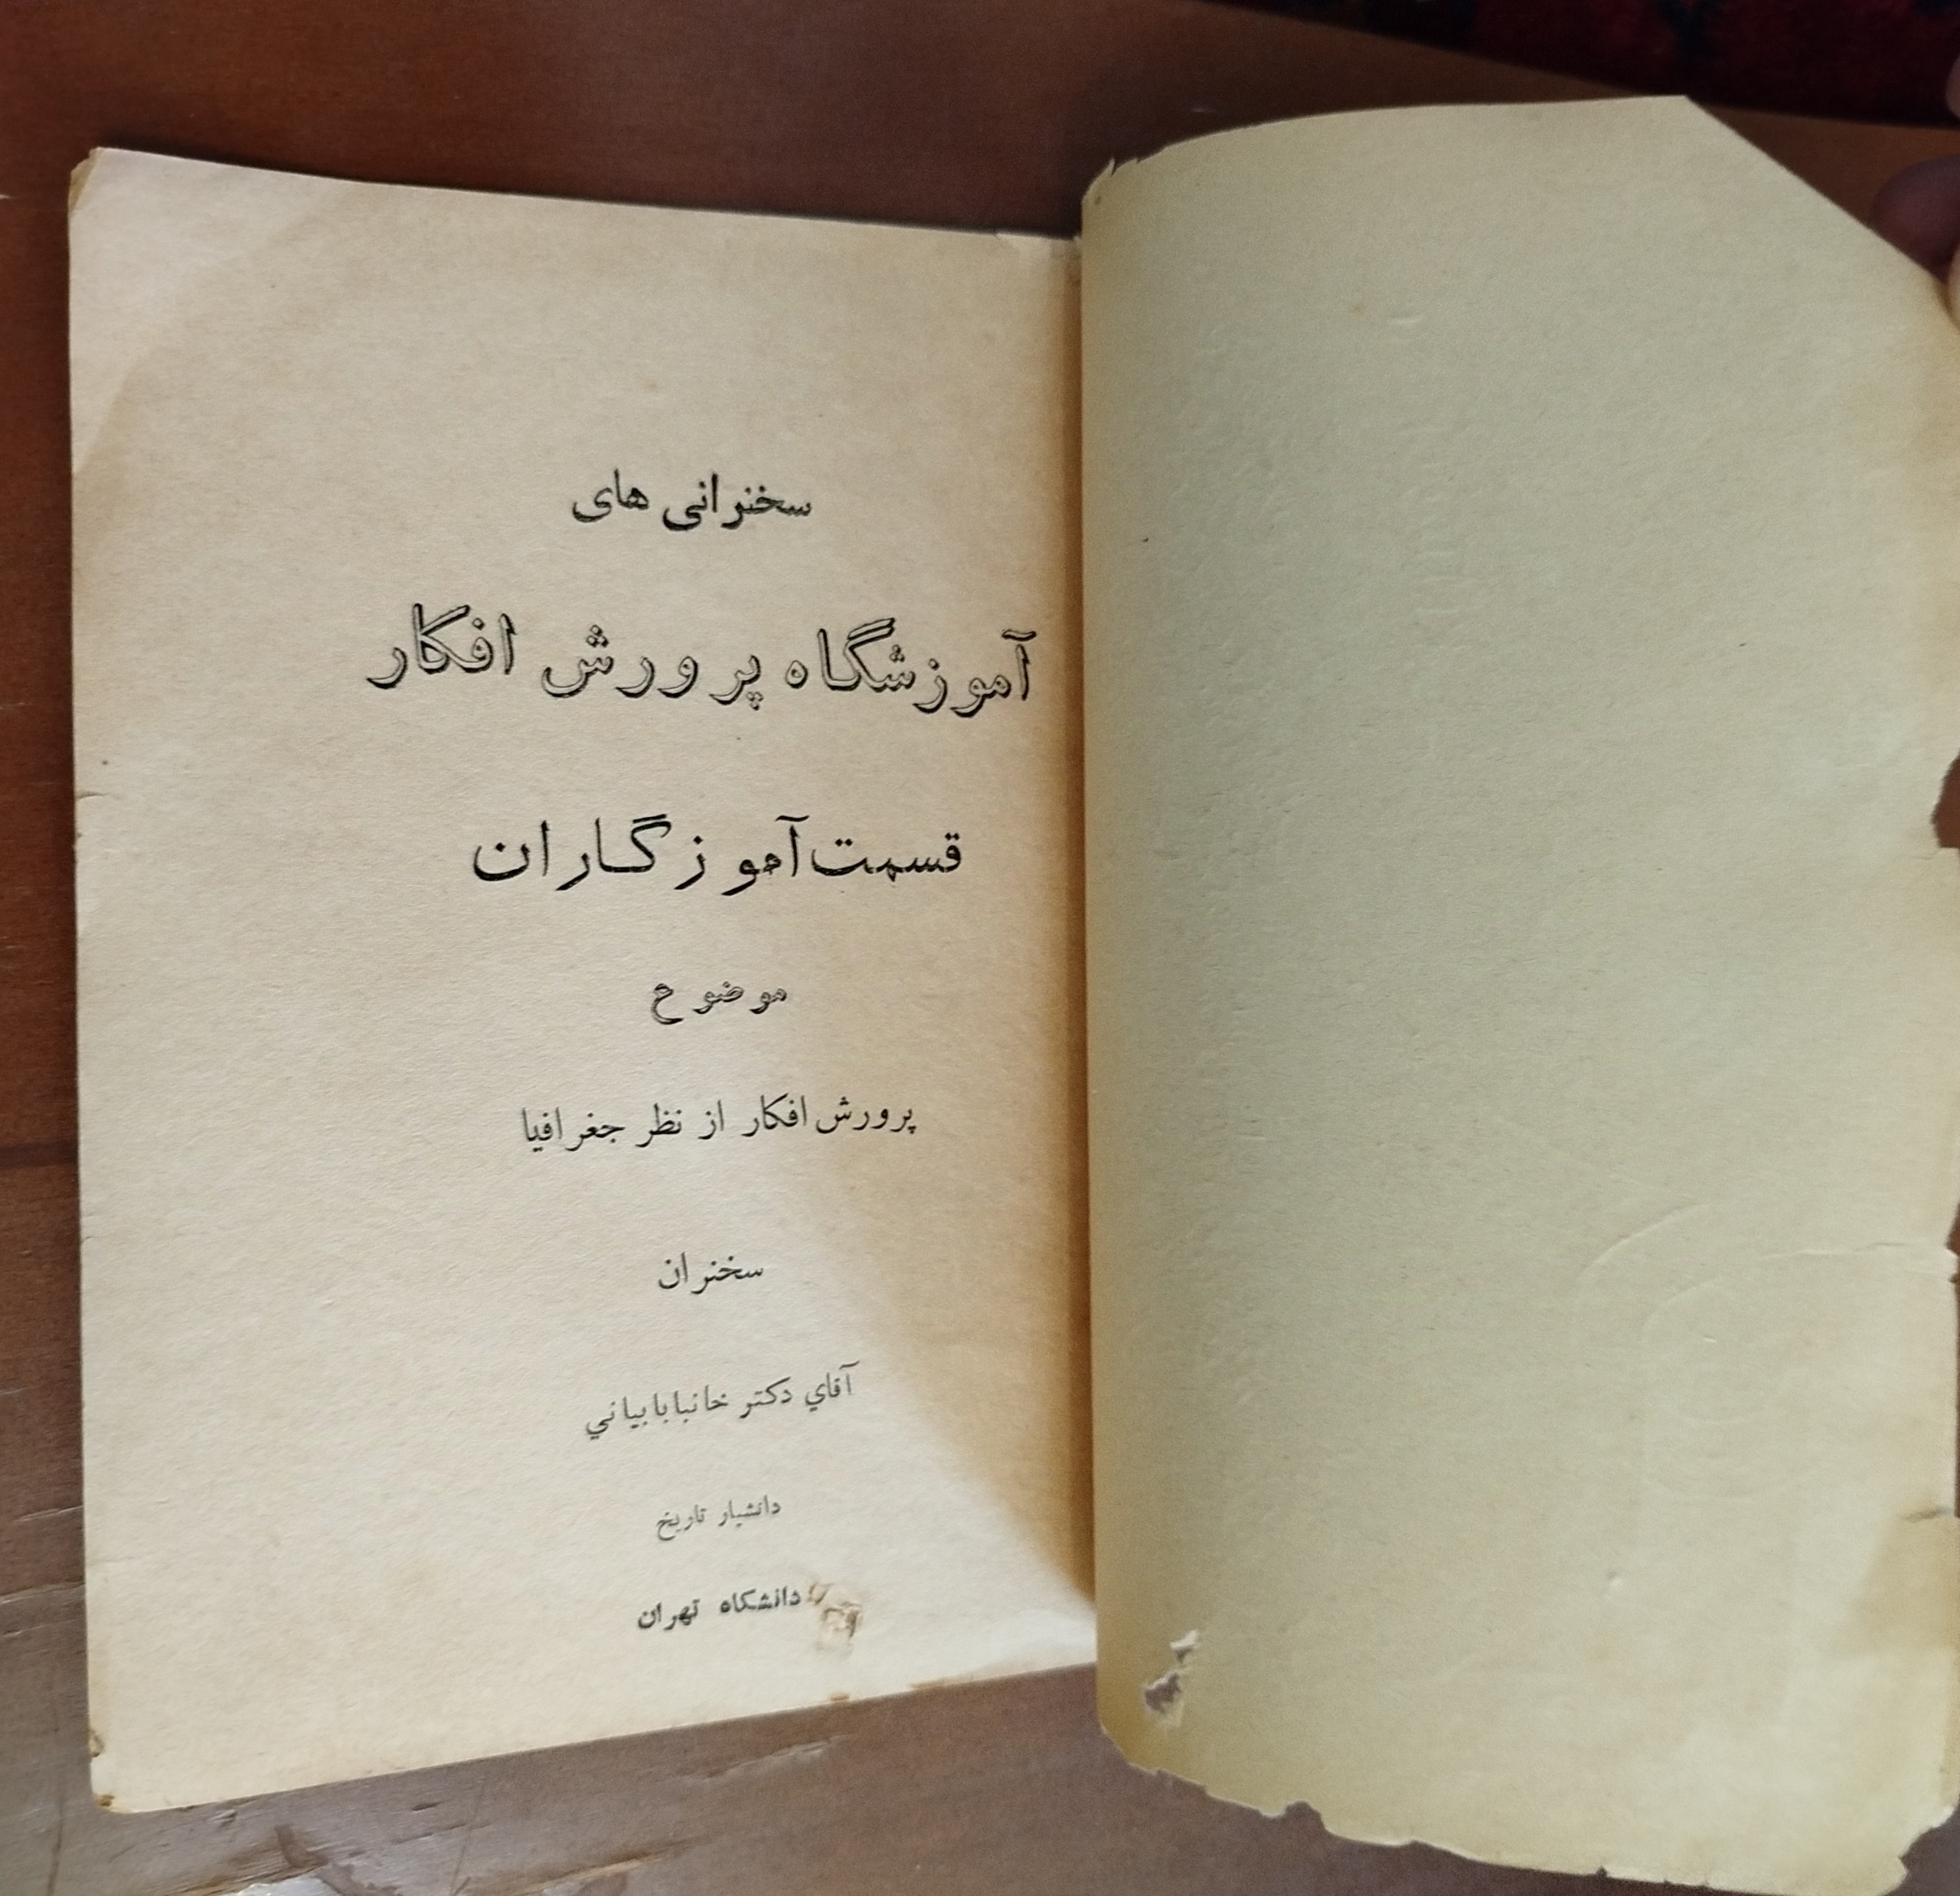 سخنرانی های
آموزشگاه پرورش افکار
قسمت آموزگاران
موضوع
پرورش افکار از نظر جغرافیا
سخنران
آقاي دکتر خانبابابیاني
دانشیار تاریخ
دانشکاه تهران